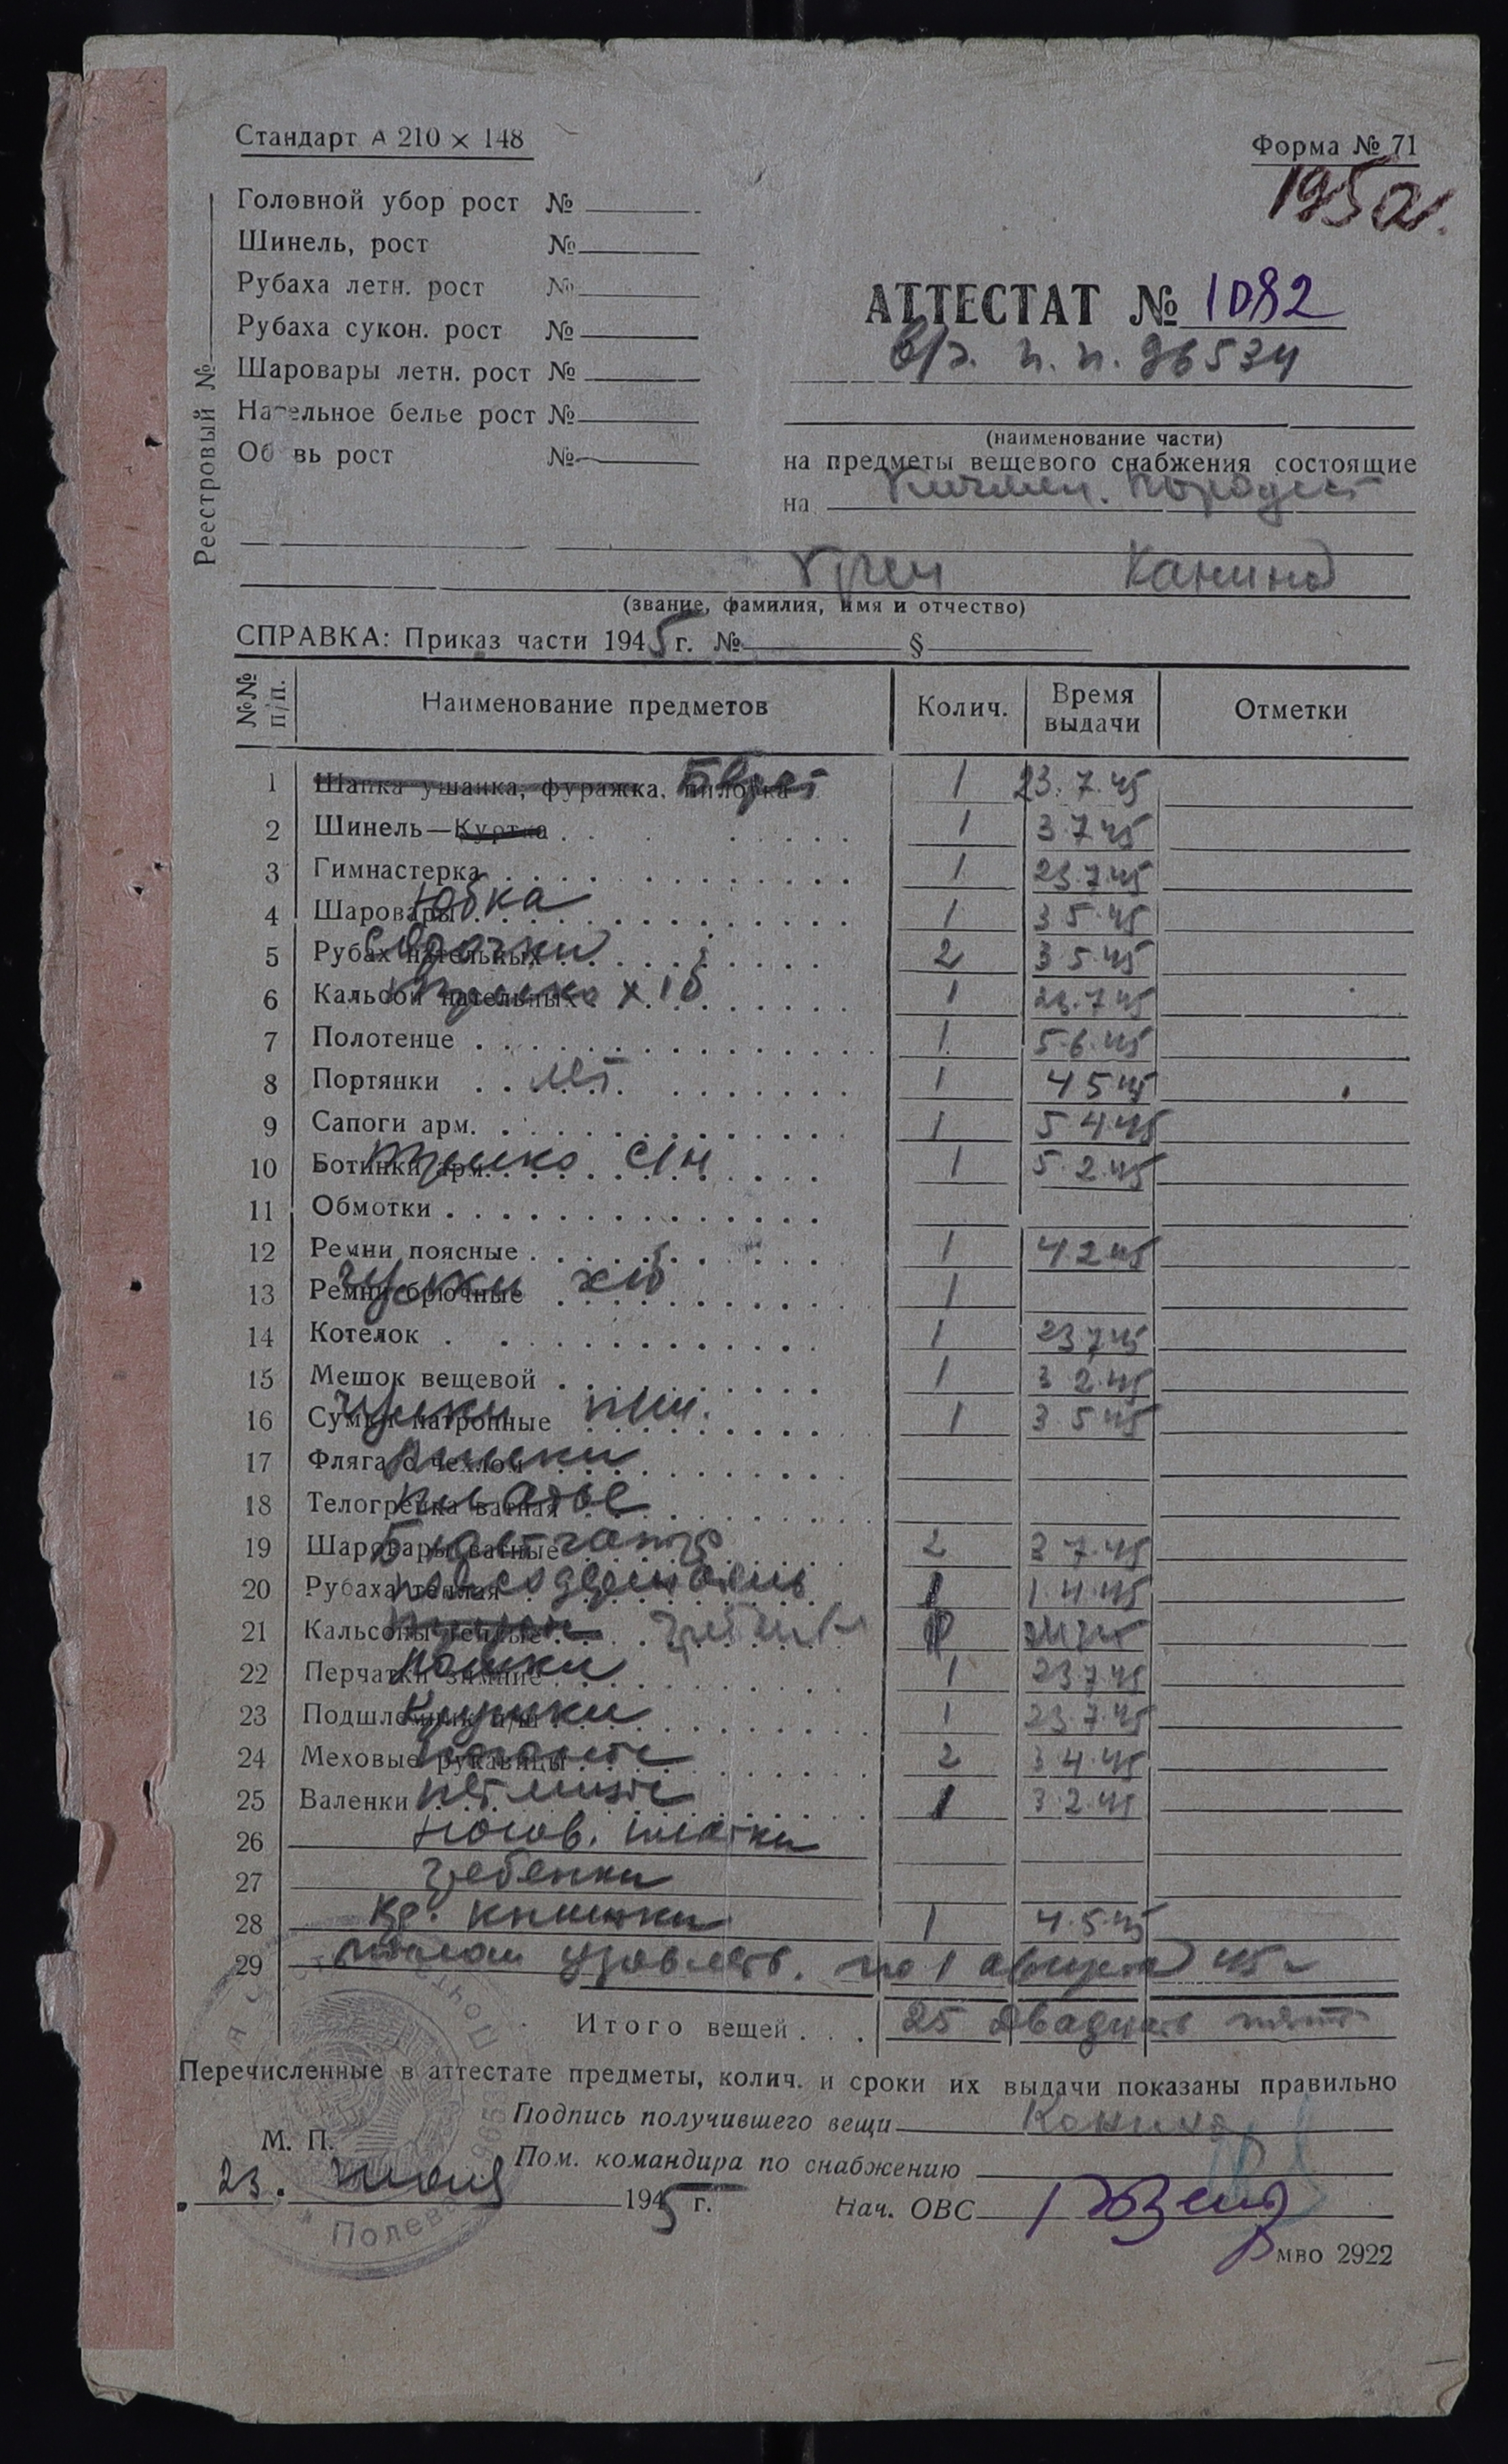 Стандарт А 210 × 148
Форма № 71
195а.
Реестровый №
Головной убор рост №
Шинель, рост №
Рубаха летн. рост №
Рубаха сукон. рост №
Шаровары летн. рост №
Нательное белье рост №
Обувь рост №
АТТЕСТАТ № 1082
в/ч. п. п. 96534
(наименование части)
на предметы вещевого снабжения состоящие
на
Канина
(звание, фамилия, имя и отчество)
СПРАВКА: Приказ части 1945 г. № §
№№ п/п. Наименование предметов Колич. Время выдачи Отметки
1 Шапка ушанка, фуражка, пилотка Берет 1 23.7.45
2 Шинель—Куртка 1 3 7 45
3 Гимнастерка 1 23.7.45
4 Шаровары Юбка 1 3 5.45
5 Рубах нательных Сорочки 2 3.5.45
6 Кальсон нательных х/б 1 23.7.45
7 Полотенце 1 5.6.45
8 Портянки лет. 1 4 5 45
9 Сапоги арм. 1 5 4.45
10 Ботинки арм. Трико с/н 1 5.2.45
11 Обмотки
12 Ремни поясные 1 4.2.45
13 Ремни брючные Чулки х/б 1
14 Котелок 1 23.7.45
15 Мешок вещевой 1 3 2.45
16 Сумки патронные Чулки п/ш. 1 3 5 45
17 Фляга с чехлом
18 Телогрейка ватная платье
19 Шаровары ватные Бюстгальтер 2 3 7.45
20 Рубаха теплая 1 1.4.45
21 Кальсоны теплые
22 Перчатки зимние Ложки 1 23.7.45
23 Подшлемник п/ш Кружки 1 23.7.45
24 Меховые рукавицы погоны 2 3 4.45
25 Валенки петлицы 1 3.2.45
26 носов. платки
27 гребенки
28 Кр. книжки 1 4.5.45
29 мылом удовлетв. по 1 августа 45 г
Итого вещей . . . 25 двадцать пять
Перечисленные в аттестате предметы, колич. и сроки их выдачи показаны правильно
Подпись получившего вещи Канина
М. П.
Пом. командира по снабжению
23. июля 1945 г.
Нач. ОВС
Полева
мво 2922